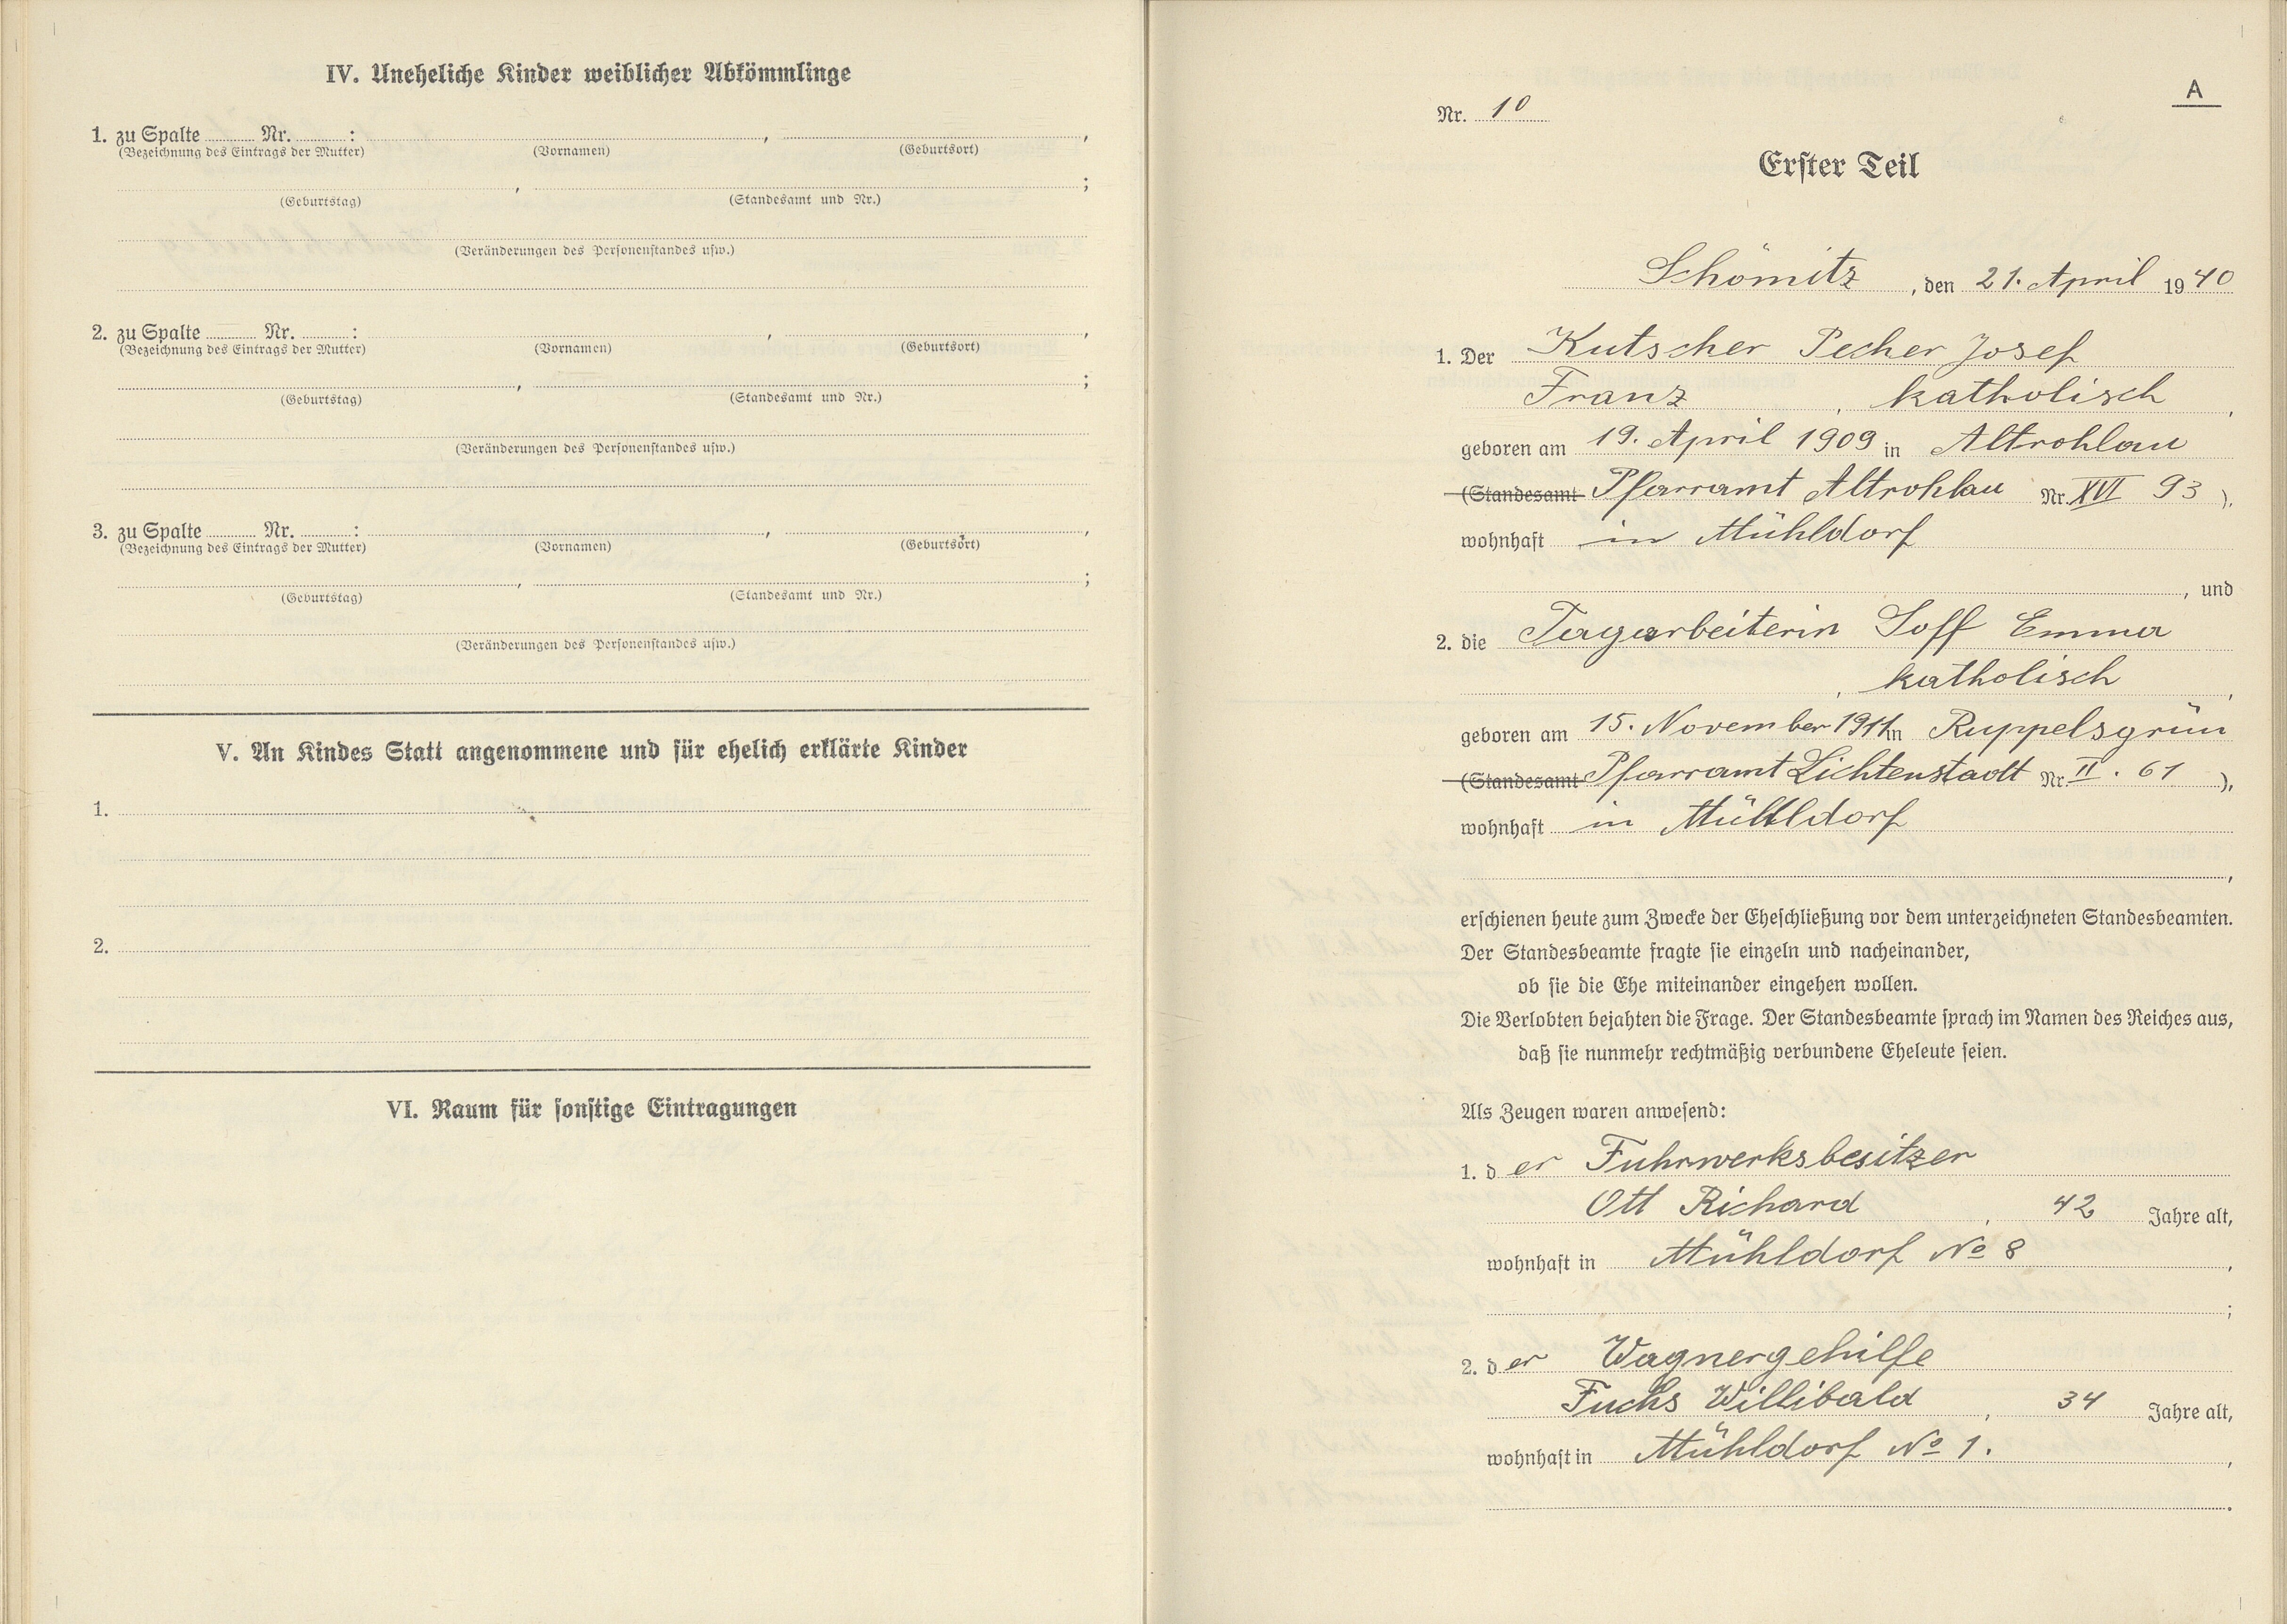 IV. Uneheliche Kinder weiblicher Abkömmlinge
1. zu Spalte ........ Nr. ........ : , ,
(Bezeichnung des Eintrags der Mutter) (Vornamen) (Geburtsort)
, ;
(Geburtstag) (Standesamt und Nr.)
(Veränderungen des Personenstandes usw.)
2. zu Spalte ........ Nr. ........ : , ,
(Bezeichnung des Eintrags der Mutter) (Vornamen) (Geburtsort)
, ;
(Geburtstag) (Standesamt und Nr.)
(Veränderungen des Personenstandes usw.)
3. zu Spalte ........ Nr. ........ : , ,
(Bezeichnung des Eintrags der Mutter) (Vornamen) (Geburtsort)
, ;
(Geburtstag) (Standesamt und Nr.)
(Veränderungen des Personenstandes usw.)
V. An Kindes Statt angenommene und für ehelich erklärte Kinder
1.
2.
VI. Raum für sonstige Eintragungen
A
Nr. 10
Erster Teil
Schömitz, den 21. April 1940
1. Der Kutscher Pecher Josef
Franz, katholisch,
geboren am 19. April 1909 in Altrohlau
(Standesamt Pfarramt Altrohlau Nr. XVI 93),
wohnhaft in Mühldorf
, und
2. die Tagarbeiterin Soff Emma
, katholisch,
geboren am 15. November 1911 in Ruppelsgrün
(Standesamt Pfarramt Lichtenstadt Nr. II. 61),
wohnhaft in Mühldorf
,
erschienen heute zum Zwecke der Eheschließung vor dem unterzeichneten Standesbeamten.
Der Standesbeamte fragte sie einzeln und nacheinander,
ob sie die Ehe miteinander eingehen wollen.
Die Verlobten bejahten die Frage. Der Standesbeamte sprach im Namen des Reiches aus,
daß sie nunmehr rechtmäßig verbundene Eheleute seien.
Als Zeugen waren anwesend:
1. der Fuhrwerksbesitzer
Ott Richard, 42 Jahre alt,
wohnhaft in Mühldorf No 8,
;
2. der Wagnergehilfe
Fuchs Willibald, 34 Jahre alt,
wohnhaft in Mühldorf No 1.,
.